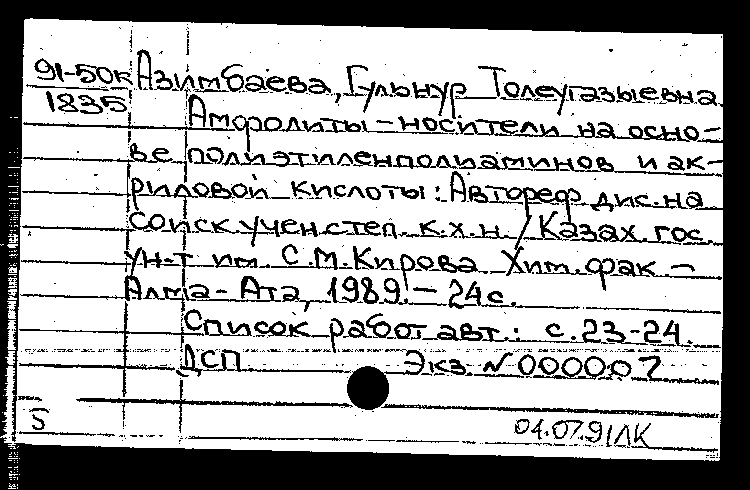 91-50к Азимбаева, Гульнур Толеугазыевна.
1835 Амфолиты - носители на осно-
ве полиэтиленполиаминов и ак-
риловой кислоты: Автореф. дис. на
соиск. учен. степ. к.х.н. / Казах. гос.
ун-т им. С.М.Кирова. Хим. фак. -
Алма-Ата, 1989. - 24 с.
Список работ авт.: с. 23-24.
ДСП Экз. № 000007
5 04.07.91ЛК